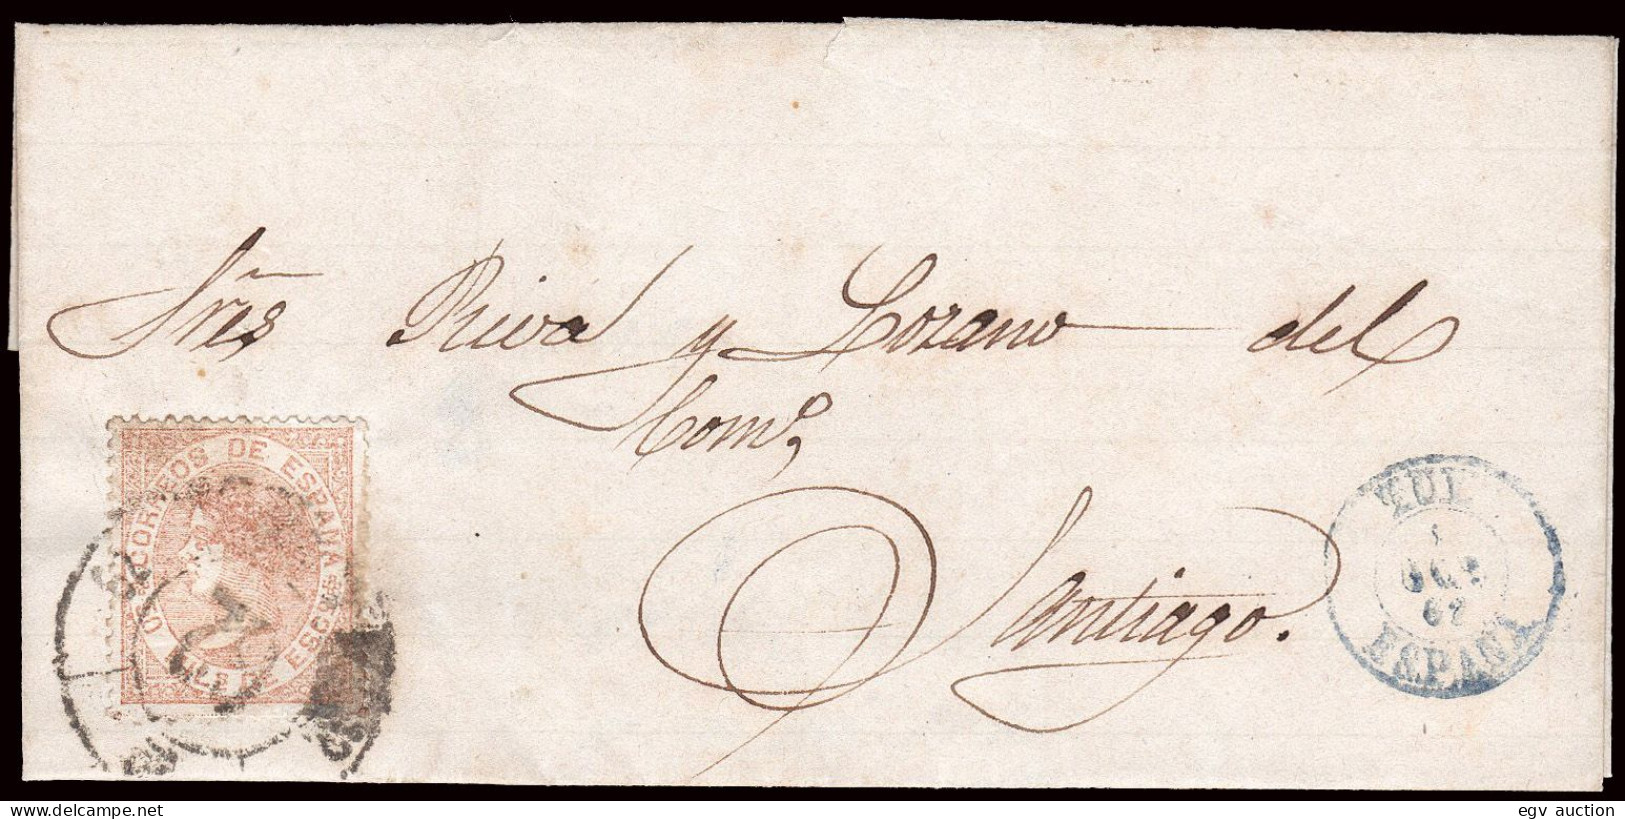 Sres Riva y Lozano del
Como,
Santiago.
CORREOS DE ESPAÑA
ESPAÑA
www.delcampe.net
egv auction